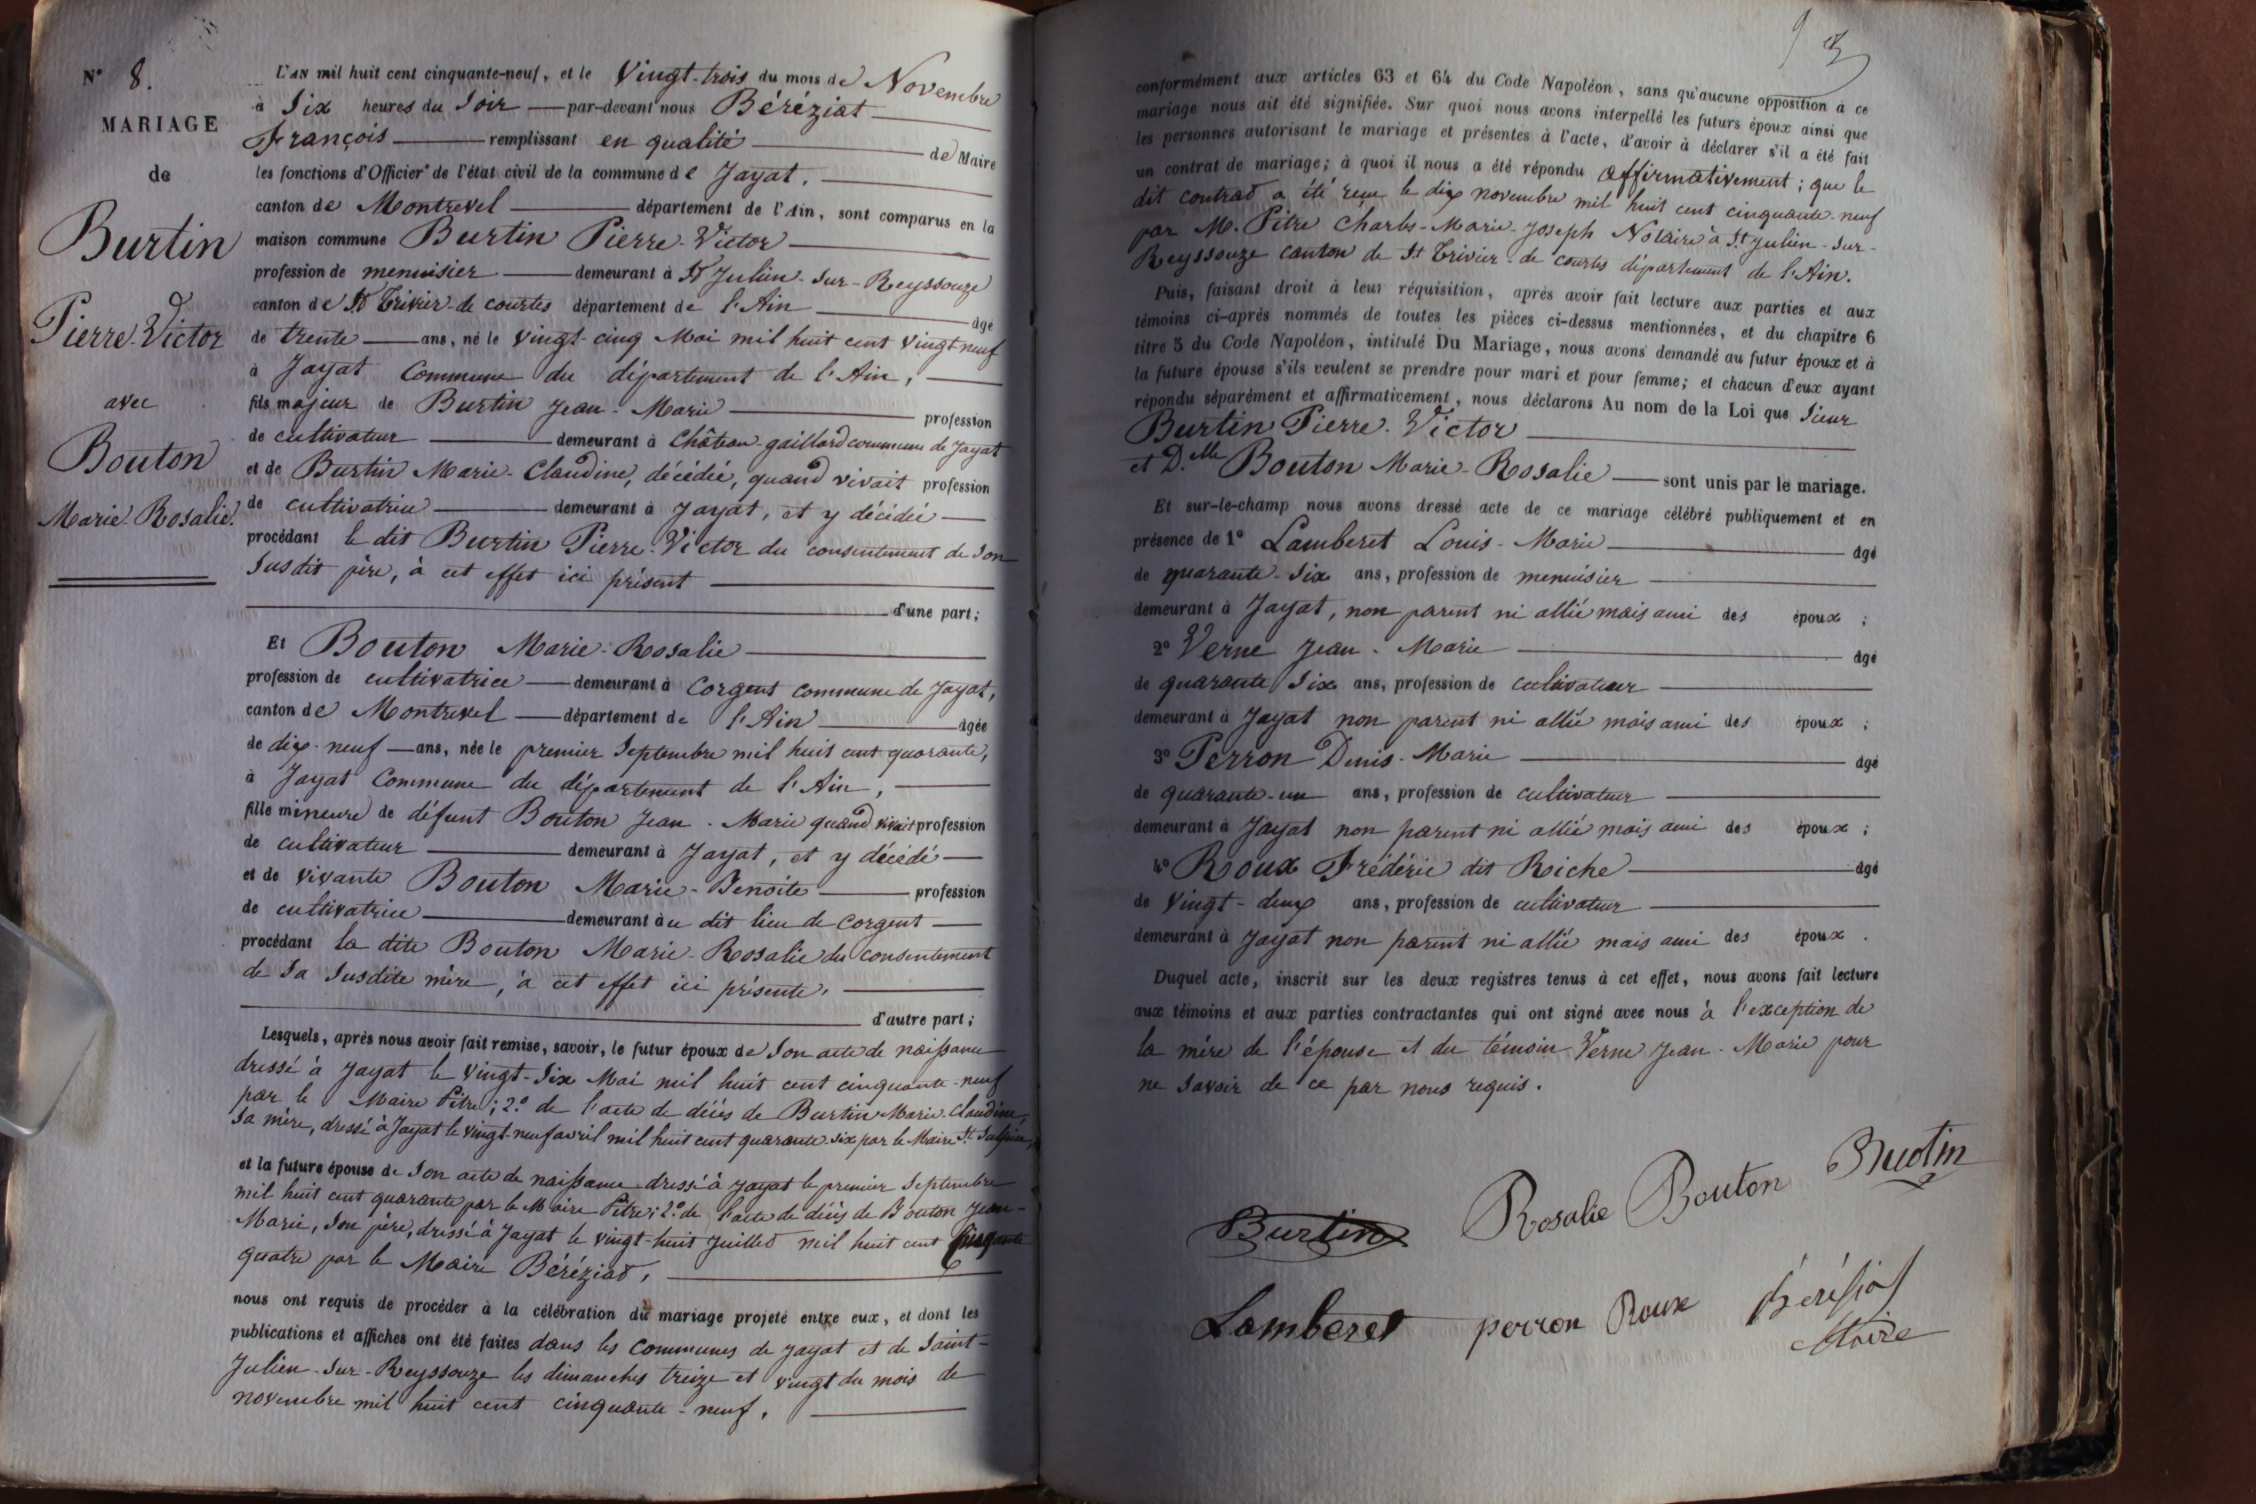 N° 8.
MARIAGE
de
Burtin
Pierre-Victor
avec
Bouton
Marie-Rosalie.
L'AN mil huit cent cinquante-neuf, et le Vingt-trois du mois de Novembre
à Six heures du Soir par-devant nous Béréziat
François remplissant en qualité de Maire
les fonctions d'Officier de l'état civil de la commune de Jayat,
canton de Montrevel département de l'Ain, sont comparus en la
maison commune Burtin Pierre-Victor
profession de menuisier demeurant à St Julien-Sur-Reyssouze
canton de St Trivier-de courtes département de l'Ain âgé
de trente ans, né le vingt-cinq Mai mil huit cent vingt neuf
à Jayat Commune du département de l'Ain,
fils majeur de Burtin Jean-Marie profession
de cultivateur demeurant à Château-gaillard commune de Jayat
et de Burtin Marie-Claudine, décédée, quand vivait profession
de cultivatrice demeurant à Jayat, et y décédée
procédant le dit Burtin Pierre-Victor du consentement de Son
Susdit père, à cet effet ici présent
d'une part;
Et Bouton Marie-Rosalie
profession de cultivatrice demeurant à Corgent commune de Jayat,
canton de Montrevel département de l'Ain âgée
de dix-neuf ans, née le premier Septembre mil huit cent quarante,
à Jayat Commune du département de l'Ain,
fille mineure de défunt Bouton Jean-Marie quand vivait profession
de cultivateur demeurant à Jayat, et y décédé
et de vivante Bouton Marie-Benoite profession
de cultivatrice demeurant au dit lieu de Corgent
procédant la dite Bouton Marie-Rosalie du consentement
de Sa Susdite mère, à cet effet ici présente,
d'autre part;
Lesquels, après nous avoir fait remise, savoir, le futur époux de Son acte de naissance
dressé à Jayat le vingt-Six Mai mil huit cent cinquante-neuf
par le Maire Pitre; 2.° de l'acte de décès de Burtin Marie-Claudine,
Sa mère, dressé à Jayat le vingt-neuf avril mil huit cent quarante-six par le Maire St Sulpice,
et la future épouse de Son acte de naissance dressé à Jayat le premier Septembre
mil huit cent quarante par le Maire Pitre; 2.° de l'acte de décès de Bouton Jean-
Marie, Son père, dressé à Jayat le vingt-huit Juillet mil huit cent cinquante
quatre par le Maire Béréziat,
nous ont requis de procéder à la célébration du mariage projeté entre eux, et dont les
publications et affiches ont été faites dans les Communes de Jayat et de Saint-
Julien-Sur-Reyssouze les dimanches treize et vingt du mois de
novembre mil huit cent cinquante-neuf,
conformément aux articles 63 et 64 du Code Napoléon, sans qu'aucune opposition à ce
mariage nous ait été signifiée. Sur quoi nous avons interpellé les futurs époux ainsi que
les personnes autorisant le mariage et présentes à l'acte, d'avoir à déclarer s'il a été fait
un contrat de mariage; à quoi il nous a été répondu affirmativement; que le
dit contrat a été reçu le dix novembre mil huit cent cinquante-neuf
par M. Pitre Charles-Marie-Joseph Notaire à St Julien-Sur-
Reyssouze canton de St Trivier-de courtes département de l'Ain.
Puis, faisant droit à leur réquisition, après avoir fait lecture aux parties et aux
témoins ci-après nommés de toutes les pièces ci-dessus mentionnées, et du chapitre 6
titre 5 du Code Napoléon, intitulé Du Mariage, nous avons demandé au futur époux et à
la future épouse s'ils veulent se prendre pour mari et pour femme; et chacun d'eux ayant
répondu séparément et affirmativement, nous déclarons Au nom de la Loi que Sieur
Burtin Pierre-Victor
et D.lle Bouton Marie-Rosalie sont unis par le mariage.
Et sur-le-champ nous avons dressé acte de ce mariage célébré publiquement et en
présence de 1° Lamberet Louis-Marie âgé
de quarante-Six ans, profession de menuisier
demeurant à Jayat, non parent ni allié mais ami des époux;
2° Verne Jean-Marie âgé
de quarante Six ans, profession de cultivateur
demeurant à Jayat non parent ni allié mais ami des époux;
3° Perron Denis-Marie âgé
de quarante-un ans, profession de cultivateur
demeurant à Jayat non parent ni allié mais ami des époux;
4° Roux Frédéric dit Riche âgé
de Vingt-deux ans, profession de cultivateur
demeurant à Jayat non parent ni allié mais ami des époux.
Duquel acte, inscrit sur les deux registres tenus à cet effet, nous avons fait lecture
aux témoins et aux parties contractantes qui ont signé avec nous à l'exception de
la mère de l'épouse et du témoin Verne Jean-Marie pour
ne Savoir de ce par nous requis.
Burtin Rosalie Bouton Burtin
Lamberet perron Roux Béréziat
Maire